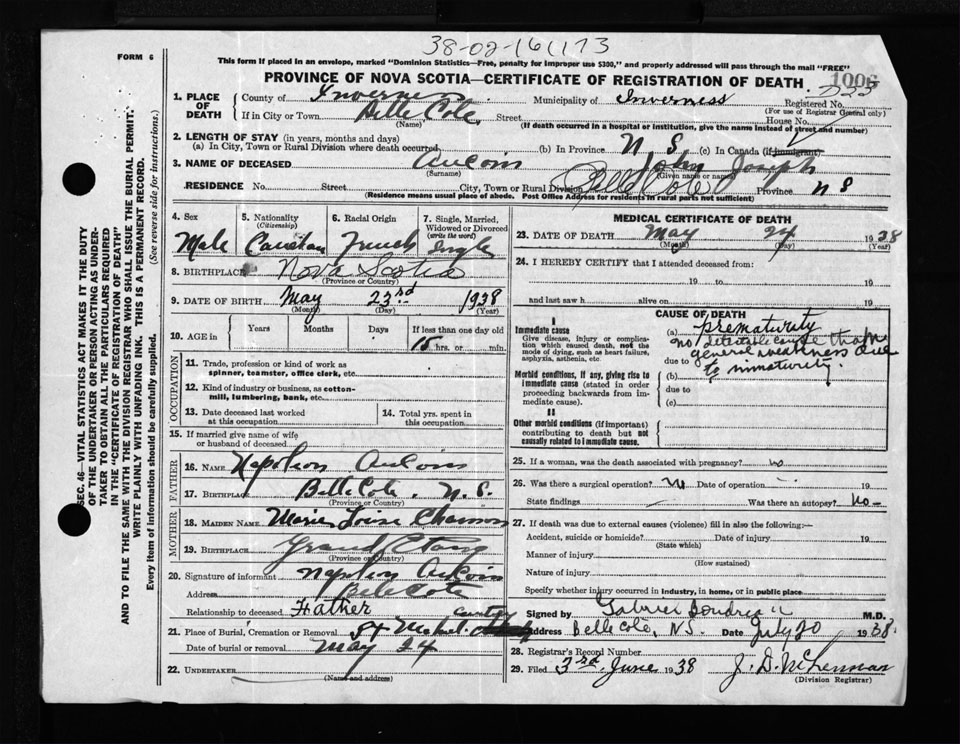 38-02-161173
FORM 6
This form if placed in an envelope, marked "Dominion Statistics—Free, penalty for improper use $300," and properly addressed will pass through the mail "FREE"
PROVINCE OF NOVA SCOTIA—CERTIFICATE OF REGISTRATION OF DEATH.
1006
1. PLACE OF DEATH
County of Inverness Municipality of Inverness Registered No.
(For use of Registrar General only)
If in City or Town Belle Cote, Street House No.
(Name) (If death occurred in a hospital or institution, give the name instead of street and number)
2. LENGTH OF STAY (in years, months and days)
(a) In City, Town or Rural Division where death occurred (b) In Province N S. (c) In Canada (if immigrant)
3. NAME OF DECEASED Aucoin John Joseph
(Surname) (Given name or names)
RESIDENCE No. Street City, Town or Rural Division Belle Cote Province N S
(Residence means usual place of abode. Post Office Address for residents in rural parts not sufficient)
4. Sex 5. Nationality (Citizenship) 6. Racial Origin 7. Single, Married, Widowed or Divorced (write the word)
Male Canadian French Single
8. BIRTHPLACE Nova Scotia
(Province or Country)
9. DATE OF BIRTH May 23rd 1938
(Month) (Day) (Year)
10. AGE in Years Months Days If less than one day old
15 hrs. or min.
OCCUPATION
11. Trade, profession or kind of work as spinner, teamster, office clerk, etc.
12. Kind of industry or business, as cotton-mill, lumbering, bank, etc.
13. Date deceased last worked at this occupation
14. Total yrs. spent in this occupation
15. If married give name of wife or husband of deceased
FATHER
16. NAME Napoleon Aucoin
17. BIRTHPLACE Belle Cote, N. S.
(Province or Country)
MOTHER
18. MAIDEN NAME Marie Louise
19. BIRTHPLACE Grand Etang
(Province or Country)
20. Signature of informant Napoleon Aucoin
Address Belle Cote
Relationship to deceased Father
21. Place of Burial, Cremation or Removal St Michael
Date of burial or removal May 24
22. UNDERTAKER
(Name and address)
MEDICAL CERTIFICATE OF DEATH
23. DATE OF DEATH May 24 1938
(Month) (Day) (Year)
24. I HEREBY CERTIFY that I attended deceased from:
19 to 19
and last saw h alive on 19
CAUSE OF DEATH
I
Immediate cause
Give disease, injury or complication which caused death, not the mode of dying, such as heart failure, asphyxia, asthenia, etc.
Morbid conditions, if any, giving rise to immediate cause (stated in order proceeding backwards from immediate cause).
II
Other morbid conditions (if important) contributing to death but not causally related to immediate cause.
(a) Prematurity
no detectable cause than
due to general weakness due
(b) to immaturity.
due to
(c)
25. If a woman, was the death associated with pregnancy? no
26. Was there a surgical operation? no Date of operation
State findings Was there an autopsy? No-
27. If death was due to external causes (violence) fill in also the following:—
Accident, suicide or homicide? Date of injury 19
(State which)
Manner of injury
(How sustained)
Nature of injury
Specify whether injury occurred in industry, in home, or in public place
Signed by Gabriel Boudreau M.D.
Address Belle Cote, N.S. Date July 20 1938.
28. Registrar's Record Number
29. Filed 3rd June 1938 J. D. McLennan
(Division Registrar)
SEC. 46—VITAL STATISTICS ACT MAKES IT THE DUTY
OF THE UNDERTAKER OR PERSON ACTING AS UNDER-
TAKER TO OBTAIN ALL THE PARTICULARS REQUIRED
IN THE "CERTIFICATE OF REGISTRATION OF DEATH"
AND TO FILE THE SAME WITH THE DIVISION REGISTRAR WHO SHALL ISSUE THE BURIAL PERMIT.
WRITE PLAINLY WITH UNFADING INK. THIS IS A PERMANENT RECORD.
Every item of information should be carefully supplied. (See reverse side for instructions.)